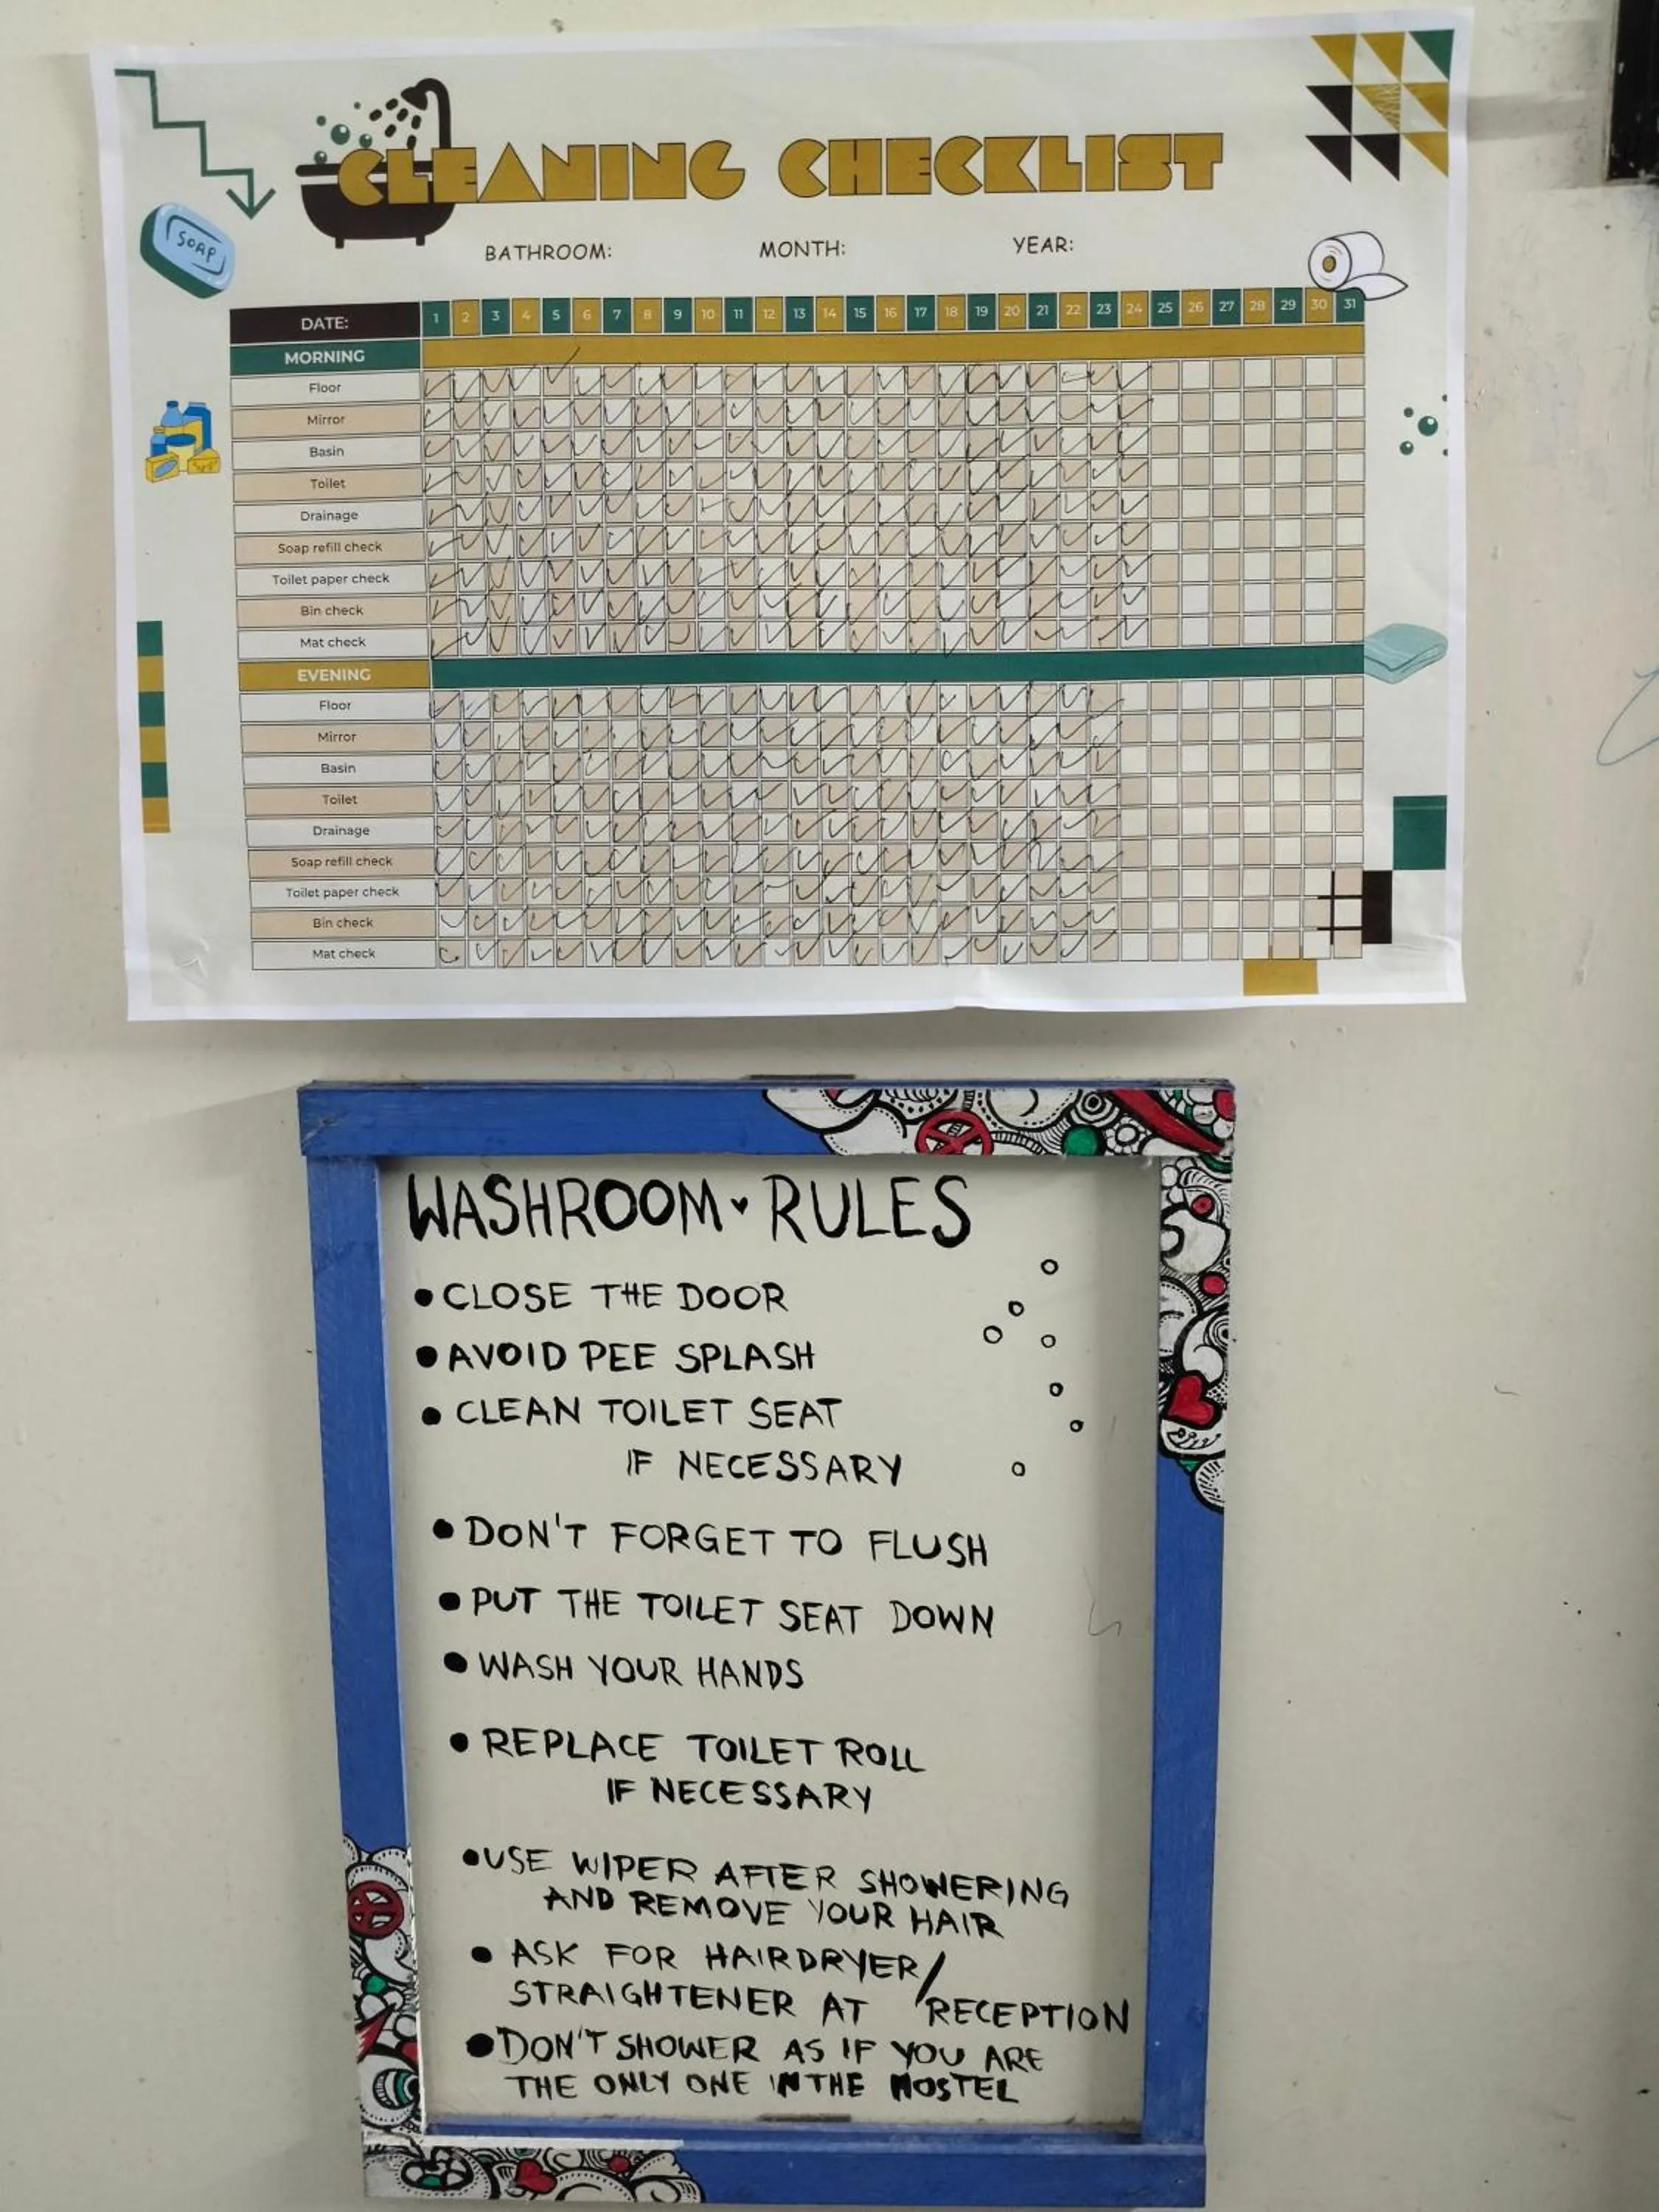 CLEANING CHECKLIST
SOAP
BATHROOM: MONTH: YEAR:
DATE: 1 2 3 4 5 6 7 8 9 10 11 12 13 14 15 16 17 18 19 20 21 22 23 24 25 26 27 28 29 30 31
MORNING
Floor
Mirror
Basin
Toilet
Drainage
Soap refill check
Toilet paper check
Bin check
Mat check
EVENING
Floor
Mirror
Basin
Toilet
Drainage
Soap refill check
Toilet paper check
Bin check
Mat check
WASHROOM RULES
• CLOSE THE DOOR
• AVOID PEE SPLASH
• CLEAN TOILET SEAT
IF NECESSARY
• DON'T FORGET TO FLUSH
• PUT THE TOILET SEAT DOWN
• WASH YOUR HANDS
• REPLACE TOILET ROLL
IF NECESSARY
• USE WIPER AFTER SHOWERING
AND REMOVE YOUR HAIR
• ASK FOR HAIRDRYER/
STRAIGHTENER AT RECEPTION
• DON'T SHOWER AS IF YOU ARE
THE ONLY ONE IN THE HOSTEL